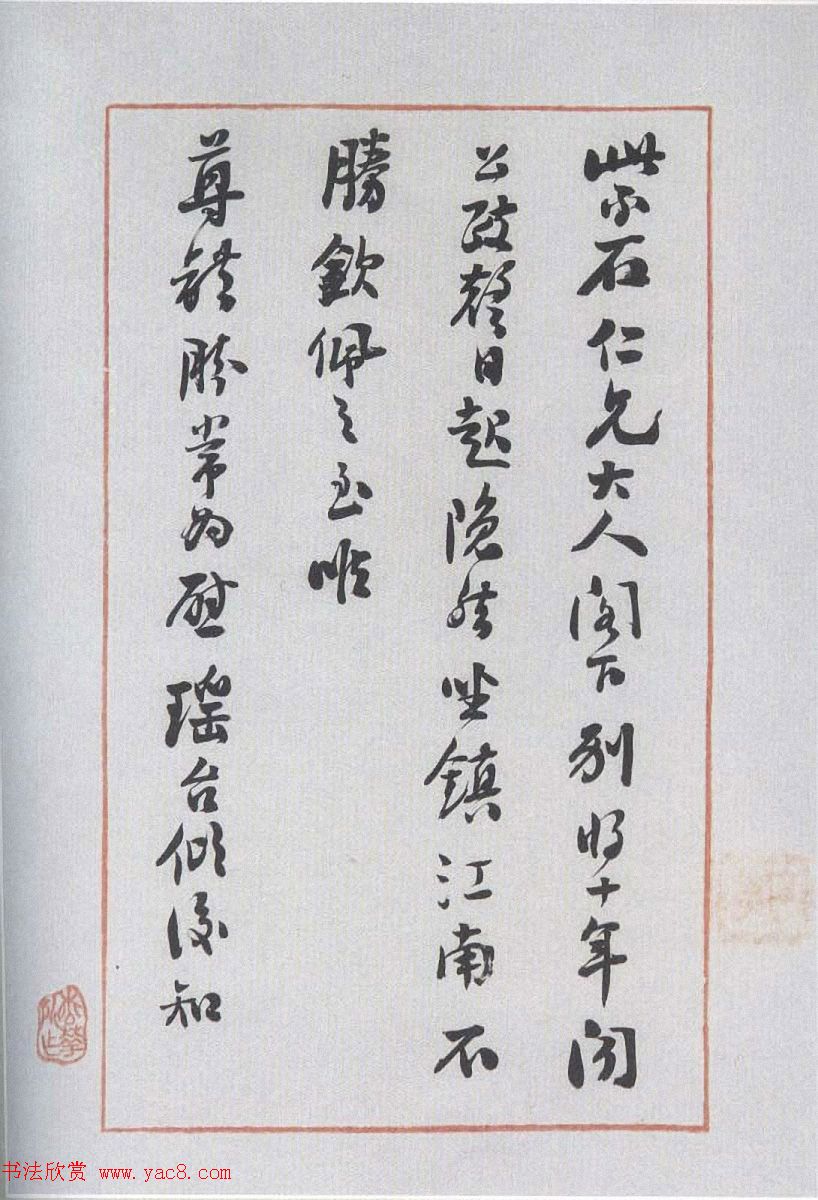 紫石仁兄大人阁下别将十年闻
公政声日起隐然坐镇江南不
胜钦佩之至唯
尊体胜常为慰瑶台倾复知
书法欣赏 www.yac8.com